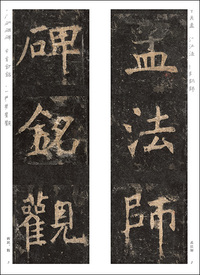 孟法師
碑銘觀